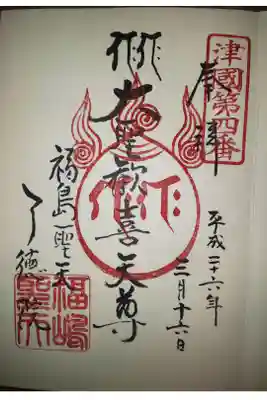 津國第四番
奉拝
平成二十六年
三月十六日
大聖歓喜天尊
福島聖天
了徳院
福嶋